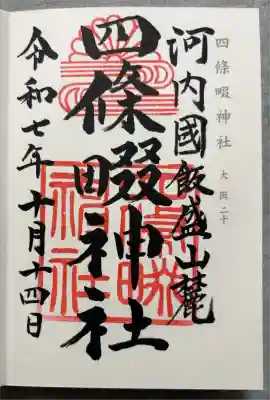 四條畷神社 大阪二十
河内國飯盛山麓
四條畷神社
令和七年十月十四日